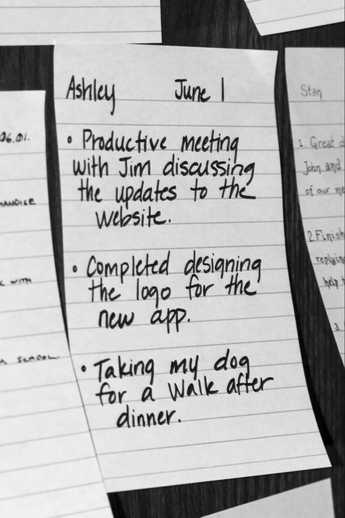 Ashley June 1
• Productive meeting
with Jim discussing
the updates to the
website.
• Completed designing
the logo for the
new app.
• Taking my dog
for a walk after
dinner.
06.01.
WITH
SCHOOL
Stan
1. Great
John and
of our me
2. Finish
replying
help
3